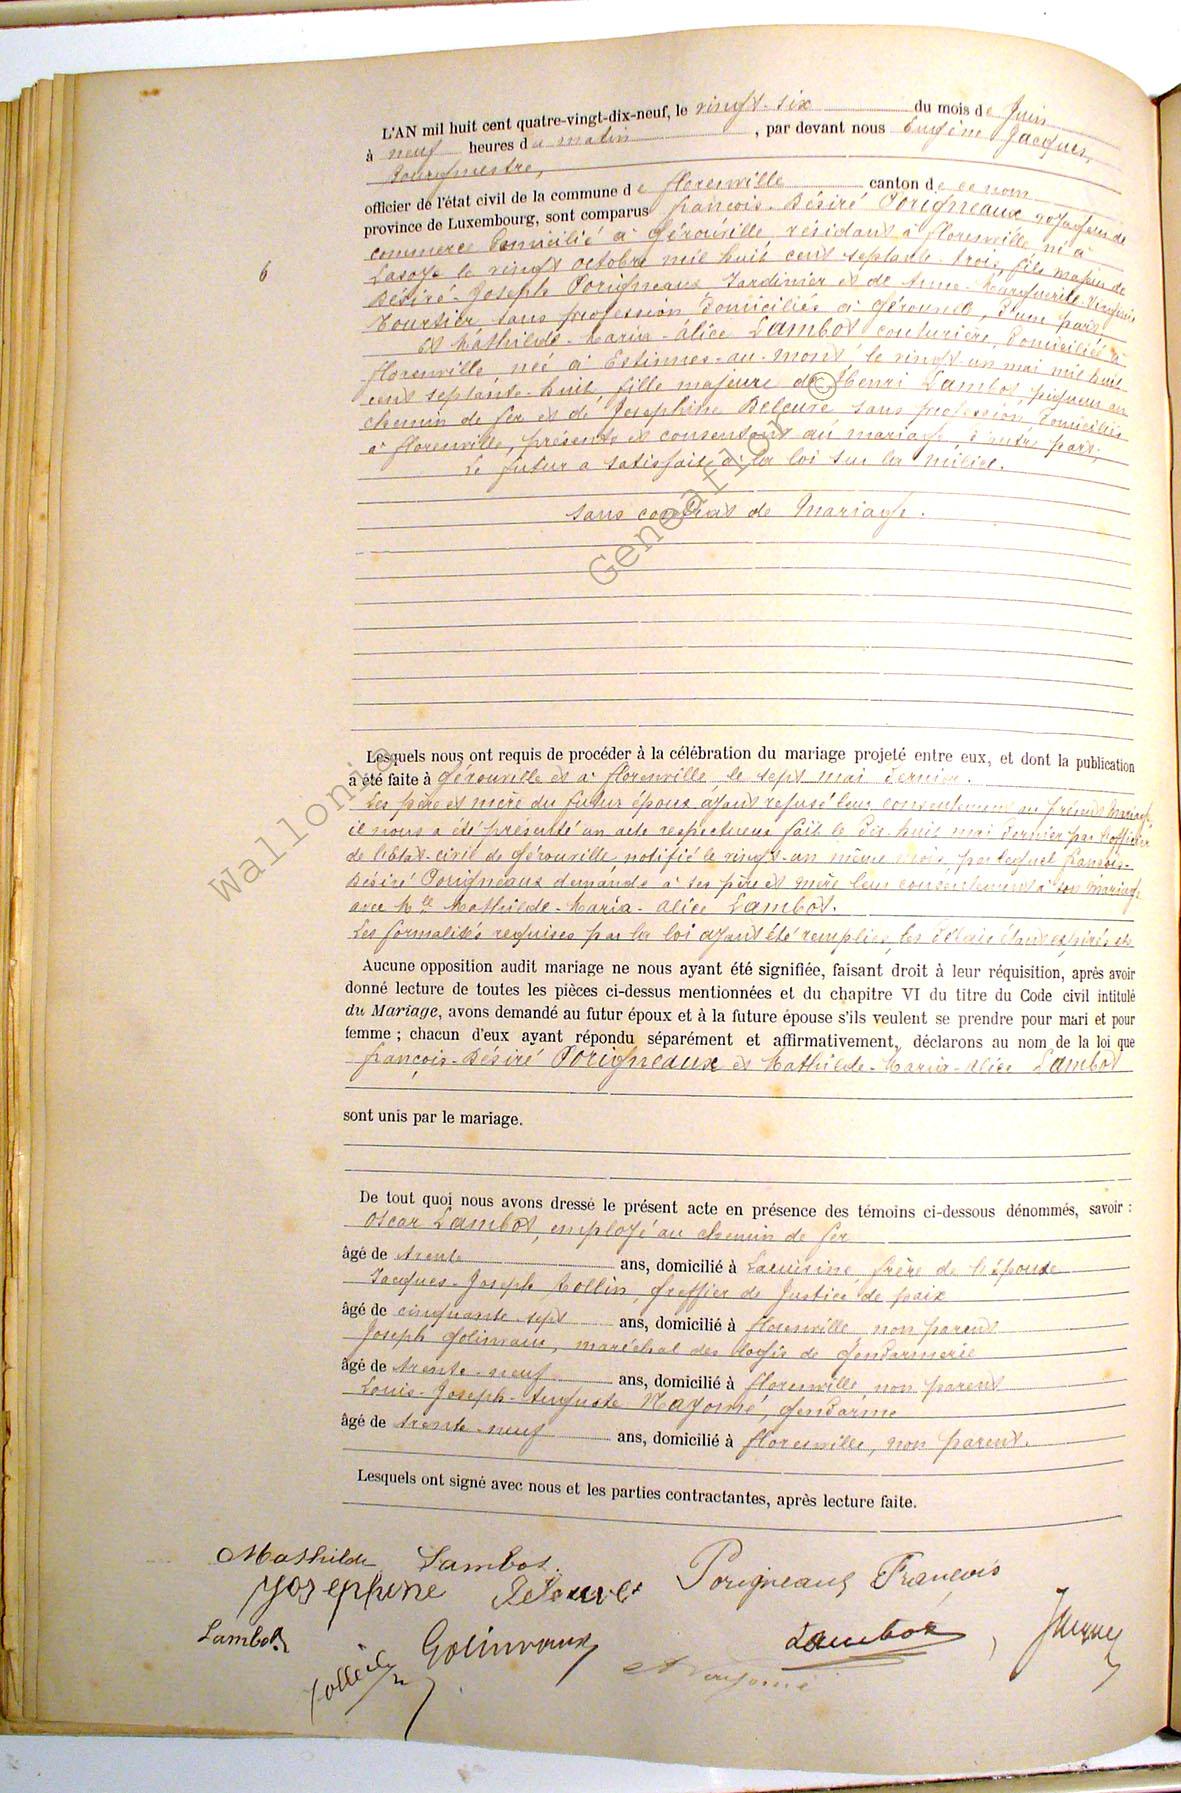 L'AN mil huit cent quatre-vingt-dix-neuf, le vingt-six du mois de Juin
à neuf heures du matin, par devant nous Eugène Jacques,
bourgmestre,
officier de l'état civil de la commune de Florenville canton de ce nom
province de Luxembourg, sont comparus François-Désiré Porigneaux voyageur de
commerce domicilié à Gérouville résidant à Florenville né à
Lasoye le vingt octobre mil huit cent septante-trois, fils majeur de
Désiré-Joseph Porigneaux Jardinier et de Anne-Marguerite-Virginie
Tourtier sans profession domiciliés à Gérouville, d'une part
et Mathilde-Maria-Alice Lambot couturière, domiciliée à
Florenville née à Estinnes-au-mont le vingt un mai mil huit
cent septante-huit, fille majeure de Henri Lambot, piqueur au
chemin de fer et de Josephine Deleuse sans profession domiciliés
à Florenville, présents et consentant au mariage, d'autre part;
Le futur a satisfait à la loi sur la milice.
Sans contrat de Mariage.
6
Lesquels nous ont requis de procéder à la célébration du mariage projeté entre eux, et dont la publication
a été faite à Gérouville et à Florenville, le sept mai dernier.
Les père et mère du futur époux ayant refusé leur consentement au présent Mariage,
il nous a été présenté un acte respectueux fait le dix-huit mai dernier par l'officier
de l'état-civil de Gérouville notifié le vingt-un même mois, par lequel François-
Désiré Porigneaux demande à ses père et mère leur consentement à son mariage
avec Mlle Mathilde-Maria-Alice Lambot.
Les formalités requises par la loi ayant été remplies, les délais étant expirés et
Aucune opposition audit mariage ne nous ayant été signifiée, faisant droit à leur réquisition, après avoir
donné lecture de toutes les pièces ci-dessus mentionnées et du chapitre VI du titre du Code civil intitulé
du Mariage, avons demandé au futur époux et à la future épouse s'ils veulent se prendre pour mari et pour
femme ; chacun d'eux ayant répondu séparément et affirmativement, déclarons au nom de la loi que
François-Désiré Porigneaux et Mathilde-Maria-Alice Lambot
sont unis par le mariage.
De tout quoi nous avons dressé le présent acte en présence des témoins ci-dessous dénommés, savoir :
Oscar Lambot, employé au chemin de fer
âgé de trente ans, domicilié à Lacuisine, frère de l'épouse
Jacques-Joseph Collin, greffier de Justice de paix
âgé de cinquante-sept ans, domicilié à Florenville non parent
Joseph Golinvaux, maréchal des logis de gendarmerie
âgé de trente-neuf ans, domicilié à Florenville, non parent
Louis-Joseph-Auguste Nayomé, gendarme
âgé de trente-neuf ans, domicilié à Florenville, non parent.
Lesquels ont signé avec nous et les parties contractantes, après lecture faite.
Mathilde Lambot. Porigneaux François
Josephine
Lambot Collin Golinvaux Lambot Jacques
Nayomé
Wallonia © Geneaflor